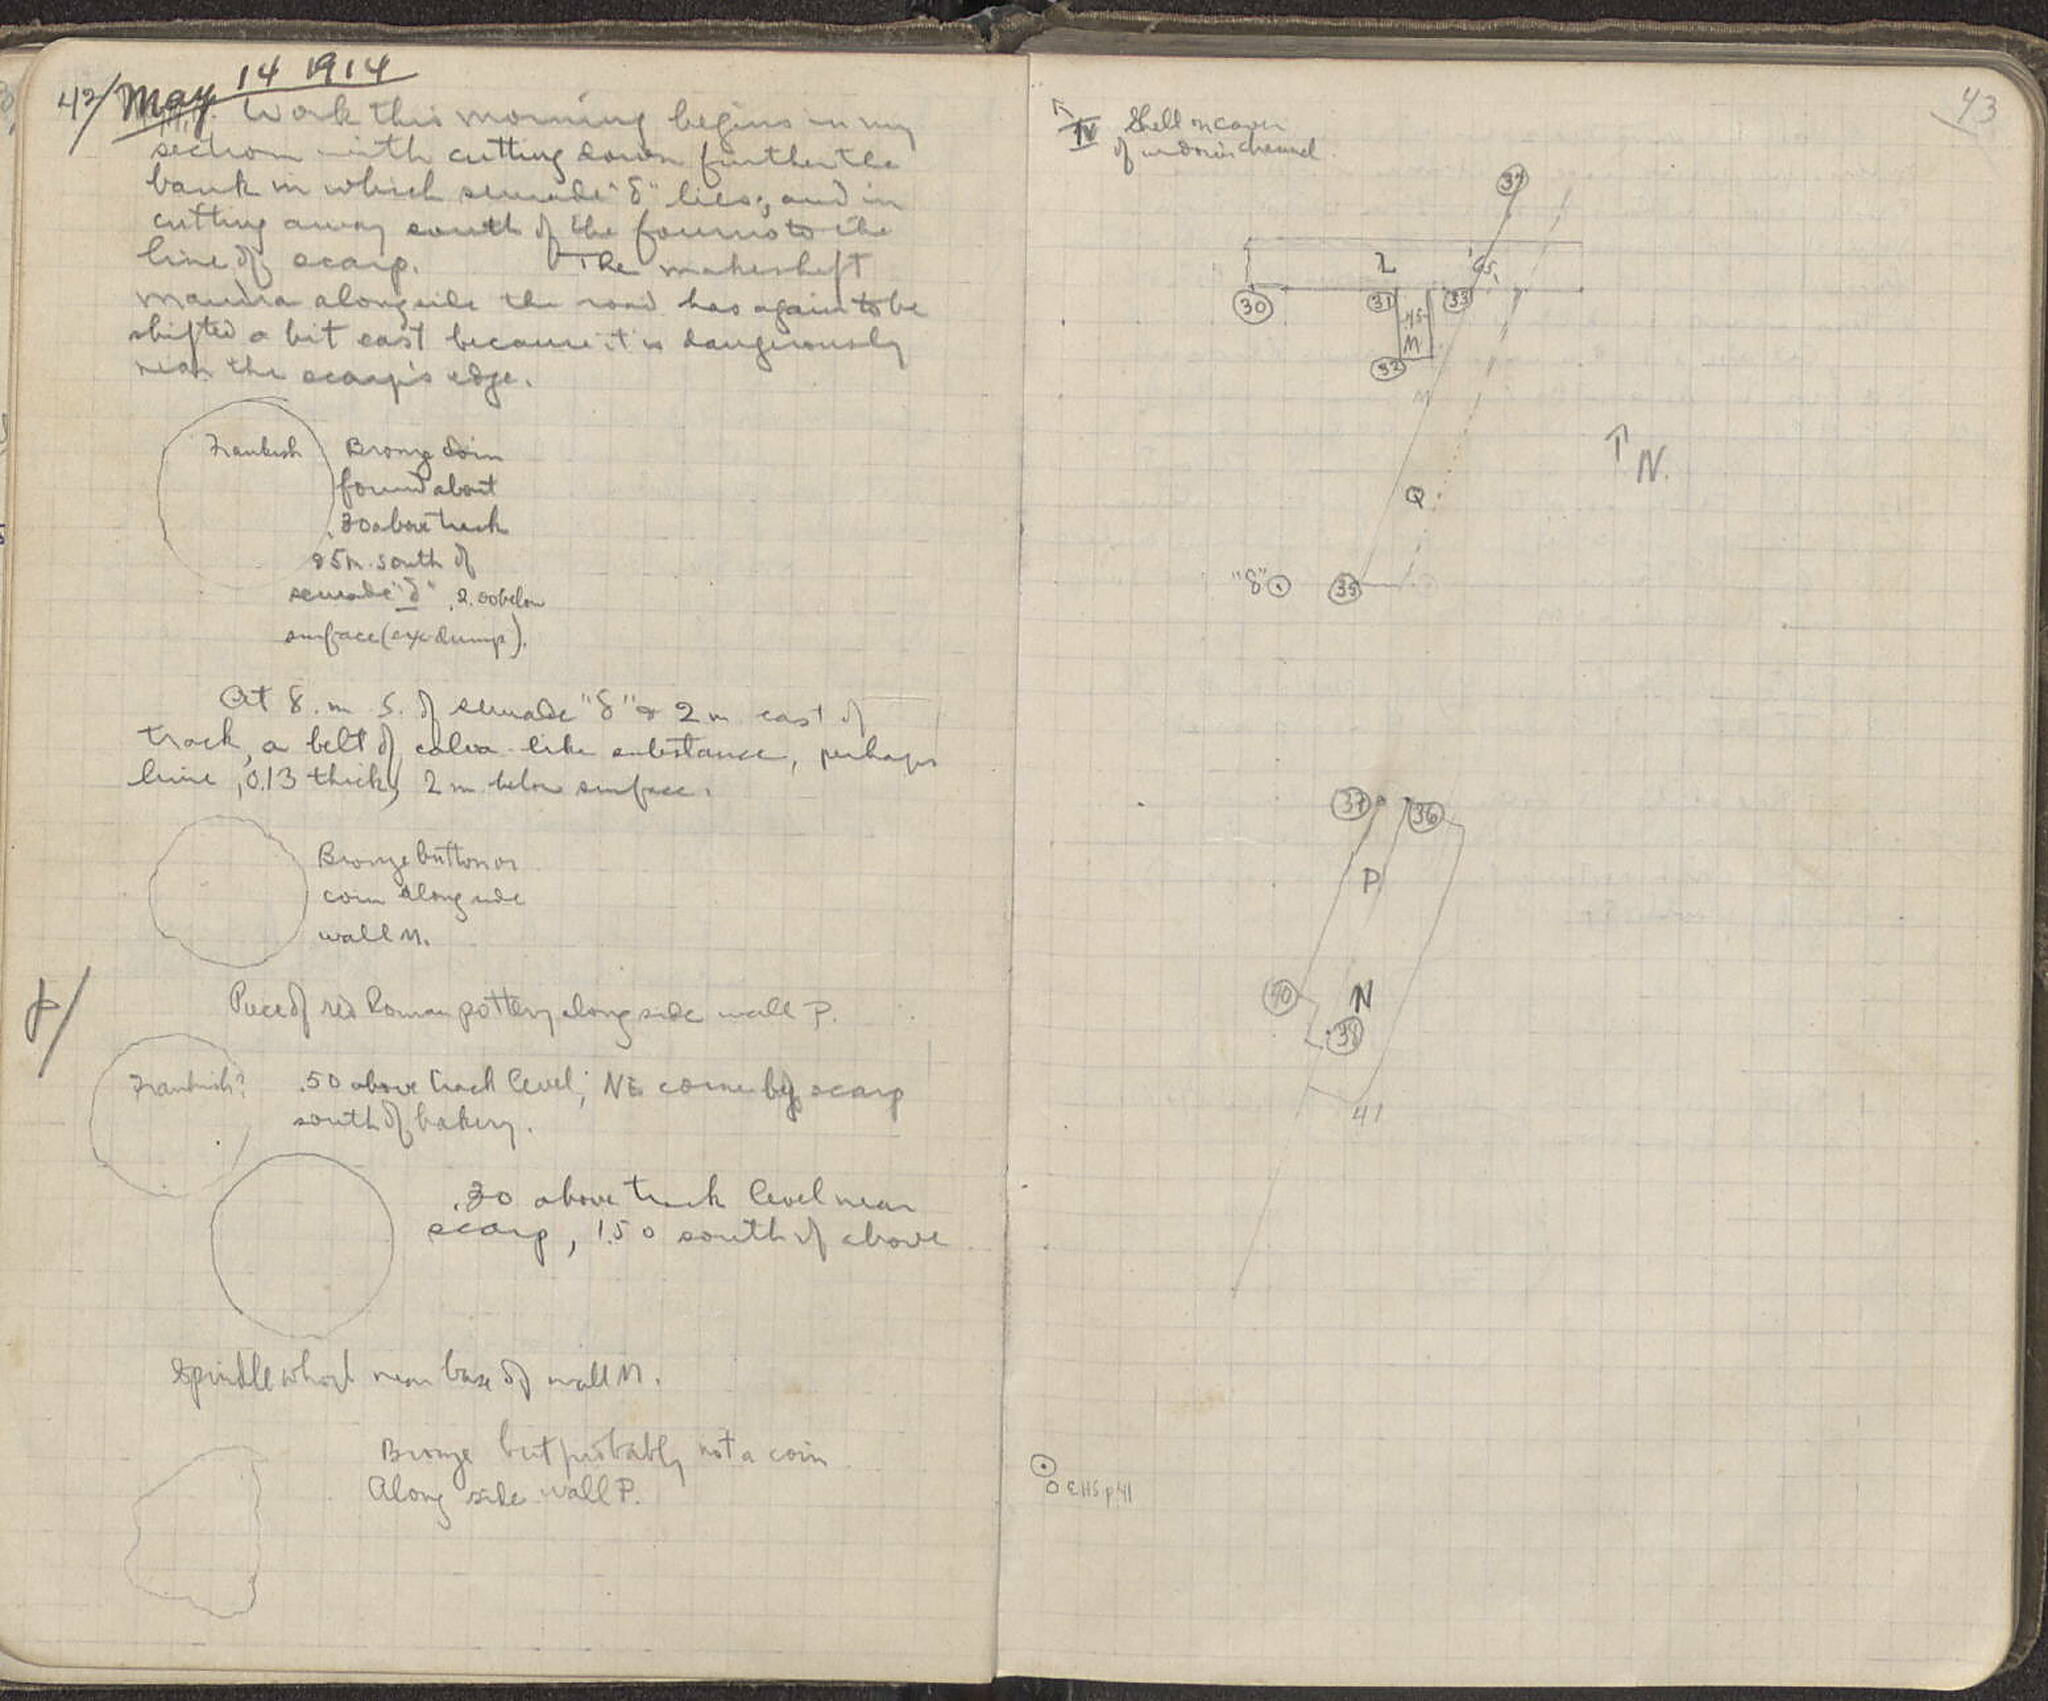 42/ May 14 1914
Work this morning begins in my
section with cutting down further the
bank in which "δ" lies; and in
cutting away south of the fourno to the
line of scarp. The makeshift
mandra alongside the road has again to be
shifted a bit east because it is dangerously
near the scarp's edge.
Frankish
Bronze coin
found about
.30 above track
25m. south of
"δ", 2.00 below
surface (ex-dump).
At 8. m S. of "δ" & 2 m east of
track, a belt of like substance, perhaps
lime, 0.13 thick, 2 m. below surface.
Bronze button or
coin alongside
wall M.
Piece of red Roman pottery alongside wall P.
Frankish?
.50 above track level; NE corner by scarp
south of bakery.
.30 above track level near
scarp, 1.50 south of above
Spindle whorl near base of wall M.
Bronze but probably not a coin
Along side wall P.
43
IV
Shell on cover
of channel.
34
L
.65
30
31
33
.45
M
32
N.
Q
"δ"
35
37
36
P
40
N
38
41
EHS p 41